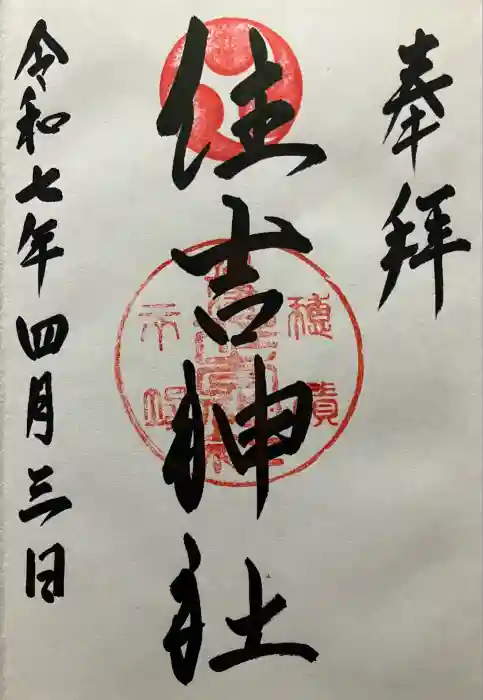 奉拝
住吉神社
穂積
市場
令和七年四月三日